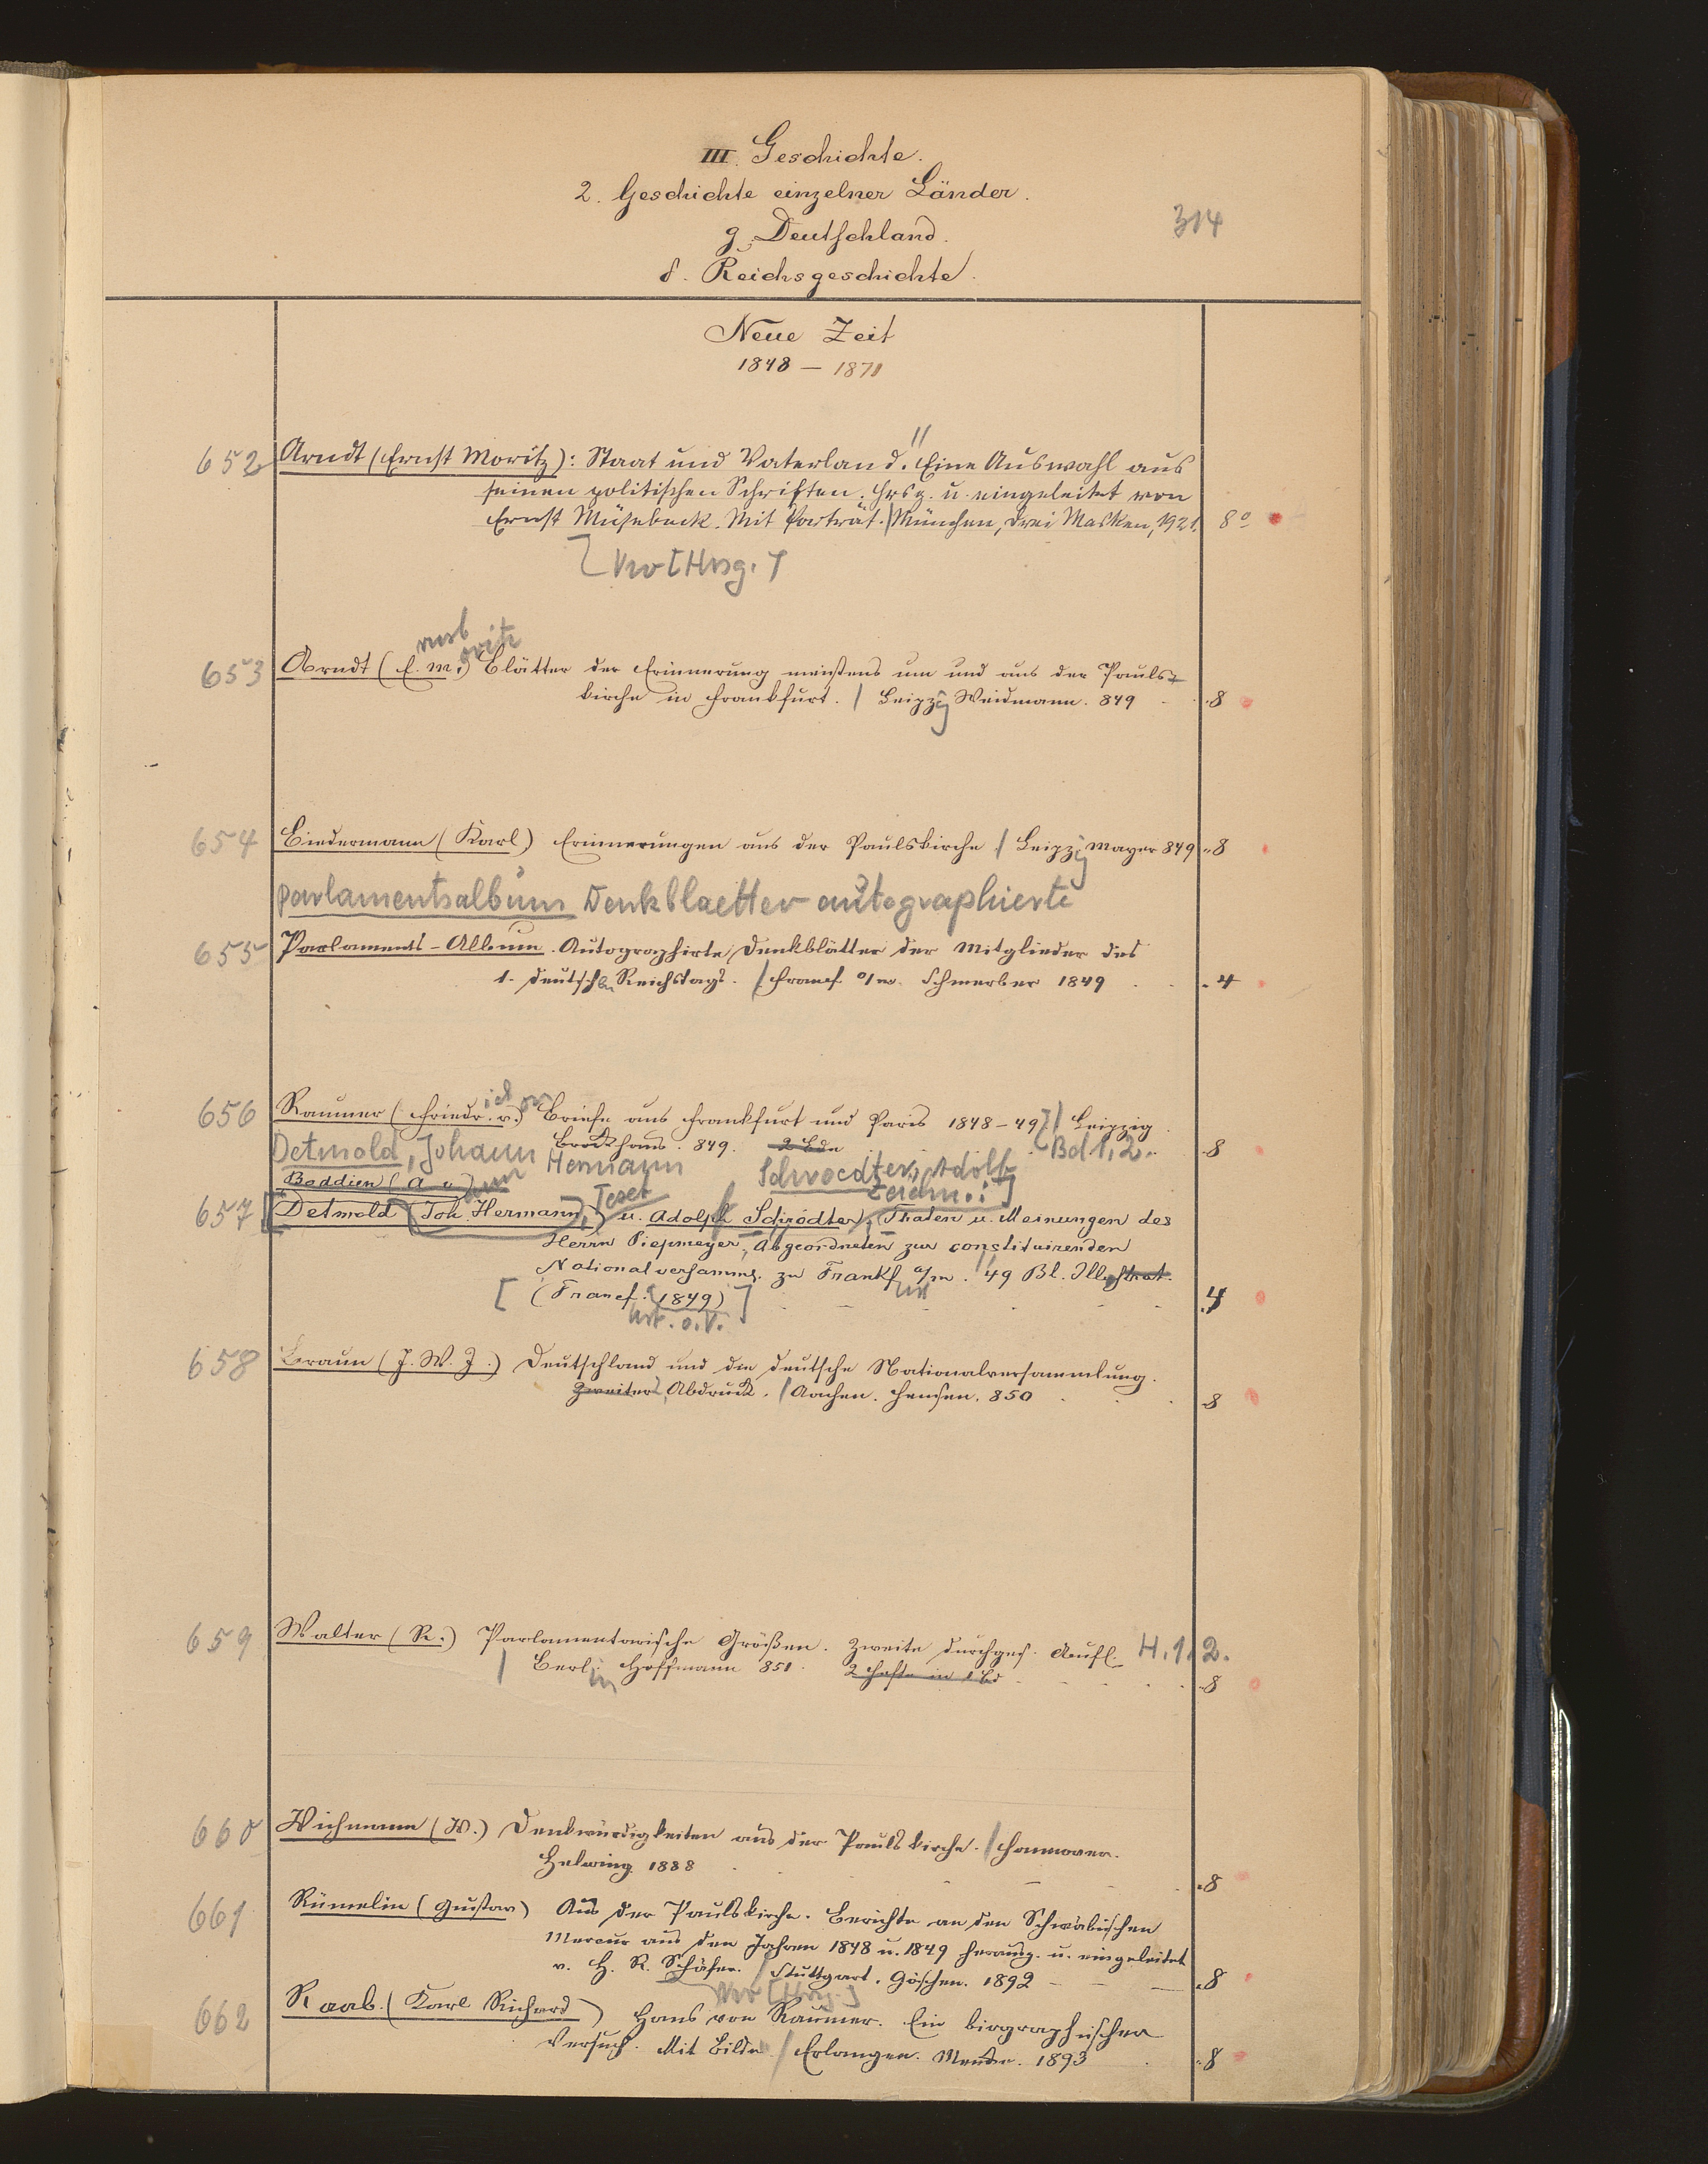 III. Geschichte.
2. Geschichte einzelner Länder.
g. Deutschland.
314
δ. Reichsgeschichte.
Neue Zeit
1848 – 1871
652 Arndt (Ernst Moritz): Staat und Vaterland. Eine Auswahl aus
seinen politischen Schriften. Hrsg. u. eingeleitet von
Ernst Müsebeck. Mit Porträt. / München, Drei Masken, 1921. 8°
[Hrsg.]
653 Arndt (E. M.) Blätter der Erinnerung meistens um und aus der Pauls-
kirche in Frankfurt. / Leipzig Weidmann. 849 8
654 Biedermann (Karl) Erinnerungen aus der Paulskirche / Leipzig Mayer 849 8
Parlamentsalbum Denkblaetter autographierte
655 Parlaments-Album. Autographirte Denkblätter der Mitglieder des
1. deutschen Reichstags. / Francf. a/m. Schmerber 1849 4
656 Raumer (Friedr. v.) Briefe aus Frankfurt und Paris 1848–49 / Leipzig.
Brockhaus. 849. 2 Bde Bd 1, 2. 8
Detmold, Johann Hermann Schroedter, Adolf
Boddien (A v) Zeichn.: ]
657 [Detmold (Joh. Hermann) u. Adolph Schrödter, Thaten u. Meinungen des
Herrn Piepmeyer, Abgeordneten zur constituirenden
Nationalversamml. zu Frankf a/m. 49 Bl. Illustrat.
[ (Francf. 1849) ] 4
658 Braun (J. W. J.) Deutschland und die deutsche Nationalversammlung.
Zweiter Abdruck. / Aachen. Hensen. 850 8
659 Walter (R.) Parlamentarische Größen. Zweite durchges. Aufl. H. 1. 2.
/ Berlin Hoffmann 851. 2 Hefte in 1 Bd 8
660 Wichmann (W.) Denkwürdigkeiten aus der Paulskirche. / Hannover.
Helwing 1888 8
661 Rümelin (Gustav) Aus der Paulskirche. Berichte an den Schwäbischen
Mercur aus den Jahren 1848 u. 1849 herausg. u. eingeleitet
v. H. R. Schäfer. / Stuttgart. Göschen. 1892 8
[Hrsg.]
662 Raab (Karl Richard) Hans von Raumer. Ein biographischer
Versuch. Mit Bilde / Erlangen. Mencke. 1893 8